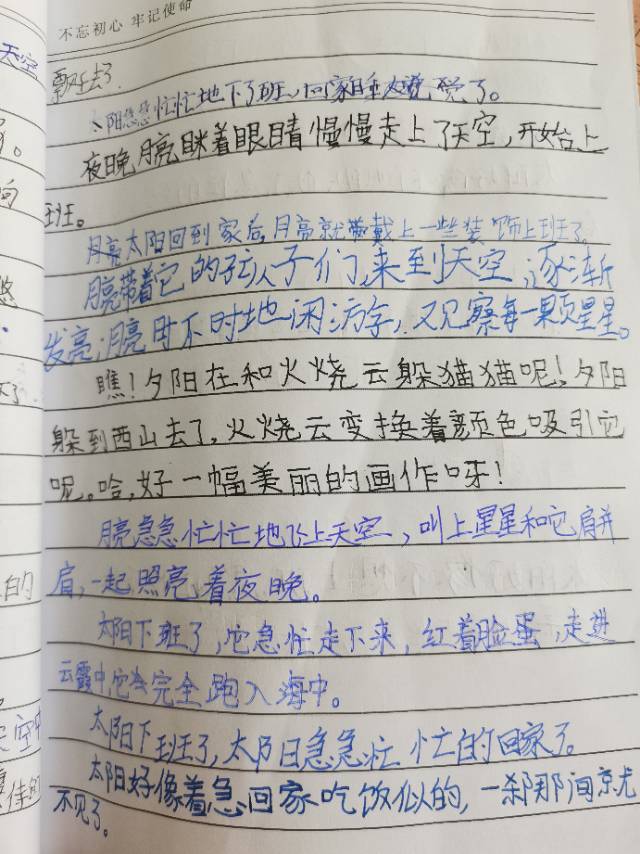 不忘初心 牢记使命
天空
飘去了
太阳急急忙忙地下了班，回家睡大觉了。
夜晚，月亮眯着眼睛慢慢走上了天空，开始上
班。
太阳回到家后，月亮就戴上一些装饰上班了。
月亮带着它的孩子们，来到天空，逐渐
发亮，月亮时不时地闭
察每一颗星星。
瞧！夕阳在和火烧云躲猫猫呢！夕阳
躲到西山去了，火烧云变换着颜色吸引它
呢。哈，好一幅美丽的画作呀！
月亮急急忙忙地飞上天空，叫上星星和它肩并
的 肩，一起照亮着夜晚。
太阳下班了，它急忙走下来，红着脸蛋，走进
云霞中，它会完全跑入海中。
天空中
太阳下班了，太阳日急急忙忙的回家了。
佳的
太阳好像着急回家吃饭似的，一刹那间就
不见了。